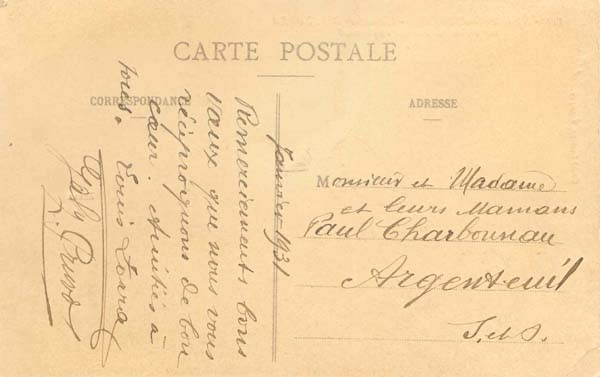 CARTE POSTALE
CORRESPONDANCE
ADRESSE
Janvier 1931
Remerciements bons
vœux que nous vous
réciproquons de bon
cœur. Amitiés à
tous.
Monsieur et Madame
et leurs Mamans
Paul Charbonneau
Argenteuil
S. et O.